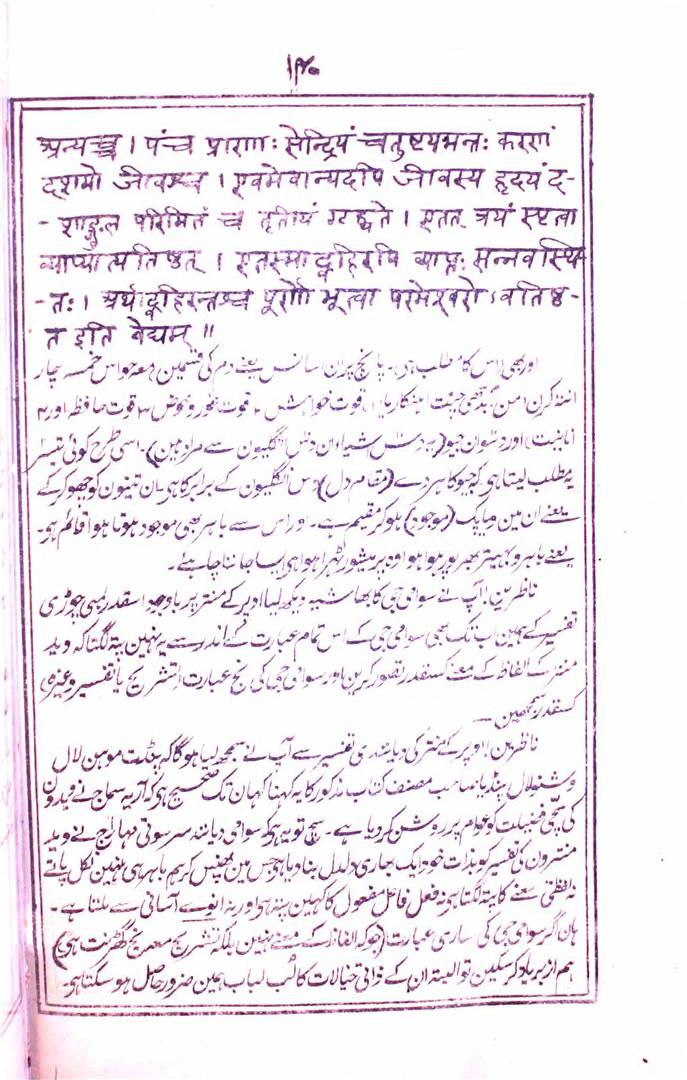 ۱۴۰
अन्यच्च । पंच प्राणाः सेन्द्रियं चतुष्टयमन्तः करणं
दशमो जीवश्च । एवमेवान्यदपि जीवस्य हृदयं द-
- शाङ्गुल परिमितं च तृतीयं गृह्यते । एतत् त्रयं स्पृत्वा
व्याप्यात्यतिष्ठत् । एतस्माद्बहिरपि व्याप्तः सन्नवस्थि
- तः । अर्थाद्बहिरन्तश्च पूर्णो भूत्वा परमेश्वरो ऽवतिष्ठ-
त इति वेद्यम् ॥
اور بھی اس کا مطلب ہی۔ پانچ پران سانس یعنے دم کی قسمین معہ حواس خمسہ چار
انتہ کرن من بدھی چت اہنکار یا قوت خواہش ۲ قوت غور وخوض ۳ قوت حافظہ اور ۴
انانیت) اور دسوان جیو (یہ دش اشیا ان دش انگلیون سے مراد ہین)۔ اسی طرح کوئی تیسرا
یہ مطلب لیتا ہی کہ جیو کا ہردے (مقام دل) دس انگلیون کے برابر کا ہی۔ ان تینون کو چھو کر کے
یعنے ان مین ویاپک (موجود) ہو کر مقیم ہے۔ اور اس سے باہر بھی موجود ہوتا ہوا قائم ہی۔
یعنے باہر و بہیتر بھرپور ہوا ہوا وہ پرمیشور ٹہرا ہوا ہی ایسا جاننا چاہئے۔
ناظرین! آپ نے سوامی جی کا بھاشیہ دیکھ لیا اوپر کے منتر پر باوجود اسقدر لمبی چوڑی
تفسیر کے ہمین اب تک بھی سوامی جی کے اس تمام عبارت کے اندر سے یہ نہین پتہ لگتا کہ وید
منتر کے الفاظ کے معنے کسقدر تصور کرین اور سوامی جی کی نج عبارت (تشریح یا تفسیر وغیرہ)
کسقدر سمجھین۔
ناظرین! اوپر کے منتر کی دیانندی تفسیر سے آپ نے سمجھ لیا ہوگا کہ پنڈت موہن لال
وشنو لال پنڈیا صاحب مصنف کتاب مذکور کا یہ کہنا کہان تک صحیح ہی کہ آریہ سماج نے ویدون
کی سچی فضیلت کو عوام پر روشن کر دیا ہے۔ سچ تو یہ ہی کہ سوامی دیانند سرسوتی مہاراج نے وید
منترون کی تفسیر کو بذات خود ایک بھاری دلدل بنا دیا ہی جس مین پھنس کر ہم باہر ہی نہین نکل پاتے
نہ لفظی معنے کا پتہ لگتا ہی نہ فعل فاعل مفعول کا کہین پتہ ہی اور نہ انوے آسانی سے ملتا ہے۔
ہان اگر سوامی جی کی ساری عبارت (جو کہ الفاظ کے معنے نہین بلکہ تشریح معہ نج گھڑنت ہی)
ہم ازبر یاد کر سکین تو البتہ ان کے ذاتی خیالات کا لب لباب ہمین ضرور حاصل ہو سکتا ہی۔